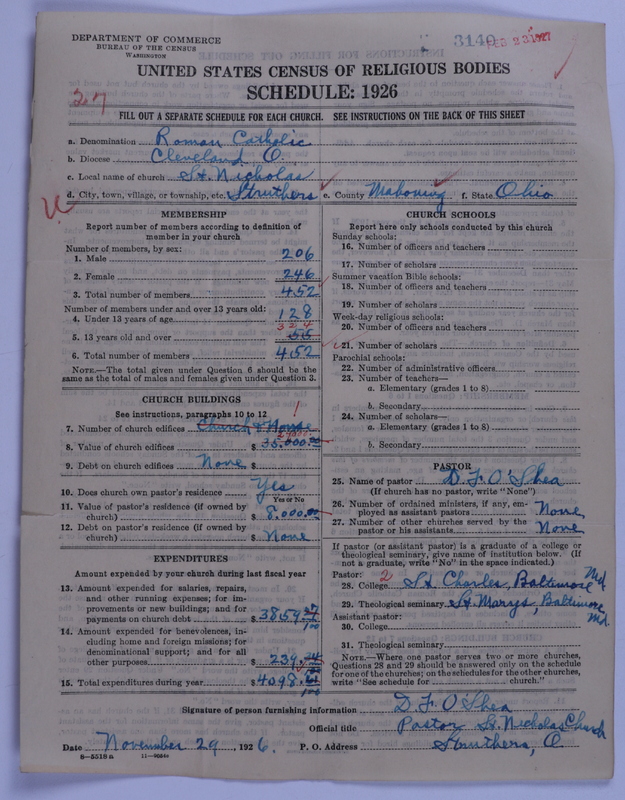 DEPARTMENT OF COMMERCE
BUREAU OF THE CENSUS
WASHINGTON
3140
FEB 23 1927
UNITED STATES CENSUS OF RELIGIOUS BODIES
SCHEDULE: 1926
27
FILL OUT A SEPARATE SCHEDULE FOR EACH CHURCH. SEE INSTRUCTIONS ON THE BACK OF THIS SHEET
a. Denomination Roman Catholic
b. Diocese Cleveland O.
c. Local name of church St. Nicholas
d. City, town, village, or township, etc. Struthers e. County Mahoning f. State Ohio
MEMBERSHIP
Report number of members according to definition of
member in your church
Number of members, by sex:
1. Male 206
2. Female 246
3. Total number of members 452
Number of members under and over 13 years old:
4. Under 13 years of age 128
324
5. 13 years old and over 55
6. Total number of members 452
NOTE.—The total given under Question 6 should be the
same as the total of males and females given under Question 3.
CHURCH BUILDINGS
See instructions, paragraphs 10 to 12
1
7. Number of church edifices Church & None
8. Value of church edifices $ 35,000.00
9. Debt on church edifices None $
10. Does church own pastor's residence Yes
Yes or No
11. Value of pastor's residence (if owned by
church) $ 8,000.00
12. Debt on pastor's residence (if owned by
church) $ None
EXPENDITURES
Amount expended by your church during last fiscal year
13. Amount expended for salaries, repairs,
and other running expenses; for im-
provements or new buildings; and for
payments on church debt $ 3859
100
14. Amount expended for benevolences, in-
cluding home and foreign missions; for
denominational support; and for all
other purposes $ 239
100
15. Total expenditures during year $ 4098
100
CHURCH SCHOOLS
Report here only schools conducted by this church
Sunday schools:
16. Number of officers and teachers
17. Number of scholars
Summer vacation Bible schools:
18. Number of officers and teachers
19. Number of scholars
Week-day religious schools:
20. Number of officers and teachers
21. Number of scholars
Parochial schools:
22. Number of administrative officers
23. Number of teachers—
a. Elementary (grades 1 to 8)
b. Secondary
24. Number of scholars—
a. Elementary (grades 1 to 8)
b. Secondary
PASTOR
25. Name of pastor D. F. O'Shea
(If church has no pastor, write "None")
26. Number of ordained ministers, if any, em-
ployed as assistant pastors None
27. Number of other churches served by the
pastor or his assistants None
If pastor (or assistant pastor) is a graduate of a college or
theological seminary, give name of institution below. (If
not a graduate, write "No" in the space indicated.)
Pastor: 2
28. College St. Charles, Baltimore Md
29. Theological seminary St. Marys, Baltimore, Md.
Assistant pastor:
30. College
31. Theological seminary
NOTE.—Where one pastor serves two or more churches,
Questions 28 and 29 should be answered only on the schedule
for one of the churches; on the schedules for the other churches,
write "See schedule for church."
Signature of person furnishing information D. F. O'Shea
Official title Pastor St. Nicholas Church
Date November 29, 1926. P. O. Address Struthers, O.
8—5518a